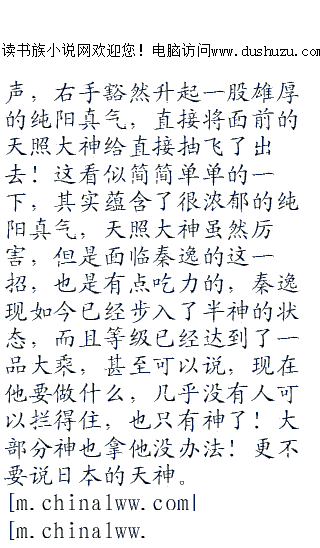 读书族小说网欢迎您！电脑访问www.dushuzu.com
声，右手豁然升起一股雄厚
的纯阳真气，直接将面前的
天照大神给直接抽飞了出
去！这看似简简单单的一
下，其实蕴含了很浓郁的纯
阳真气，天照大神虽然厉
害，但是面临秦逸的这一
招，也是有点吃力的，秦逸
现如今已经步入了半神的状
态，而且等级已经达到了一
品大乘，甚至可以说，现在
他要做什么，几乎没有人可
以拦得住，也只有神了！大
部分神也拿他没办法！更不
要说日本的天神。
[m.china1ww.com|
[m.china1ww.